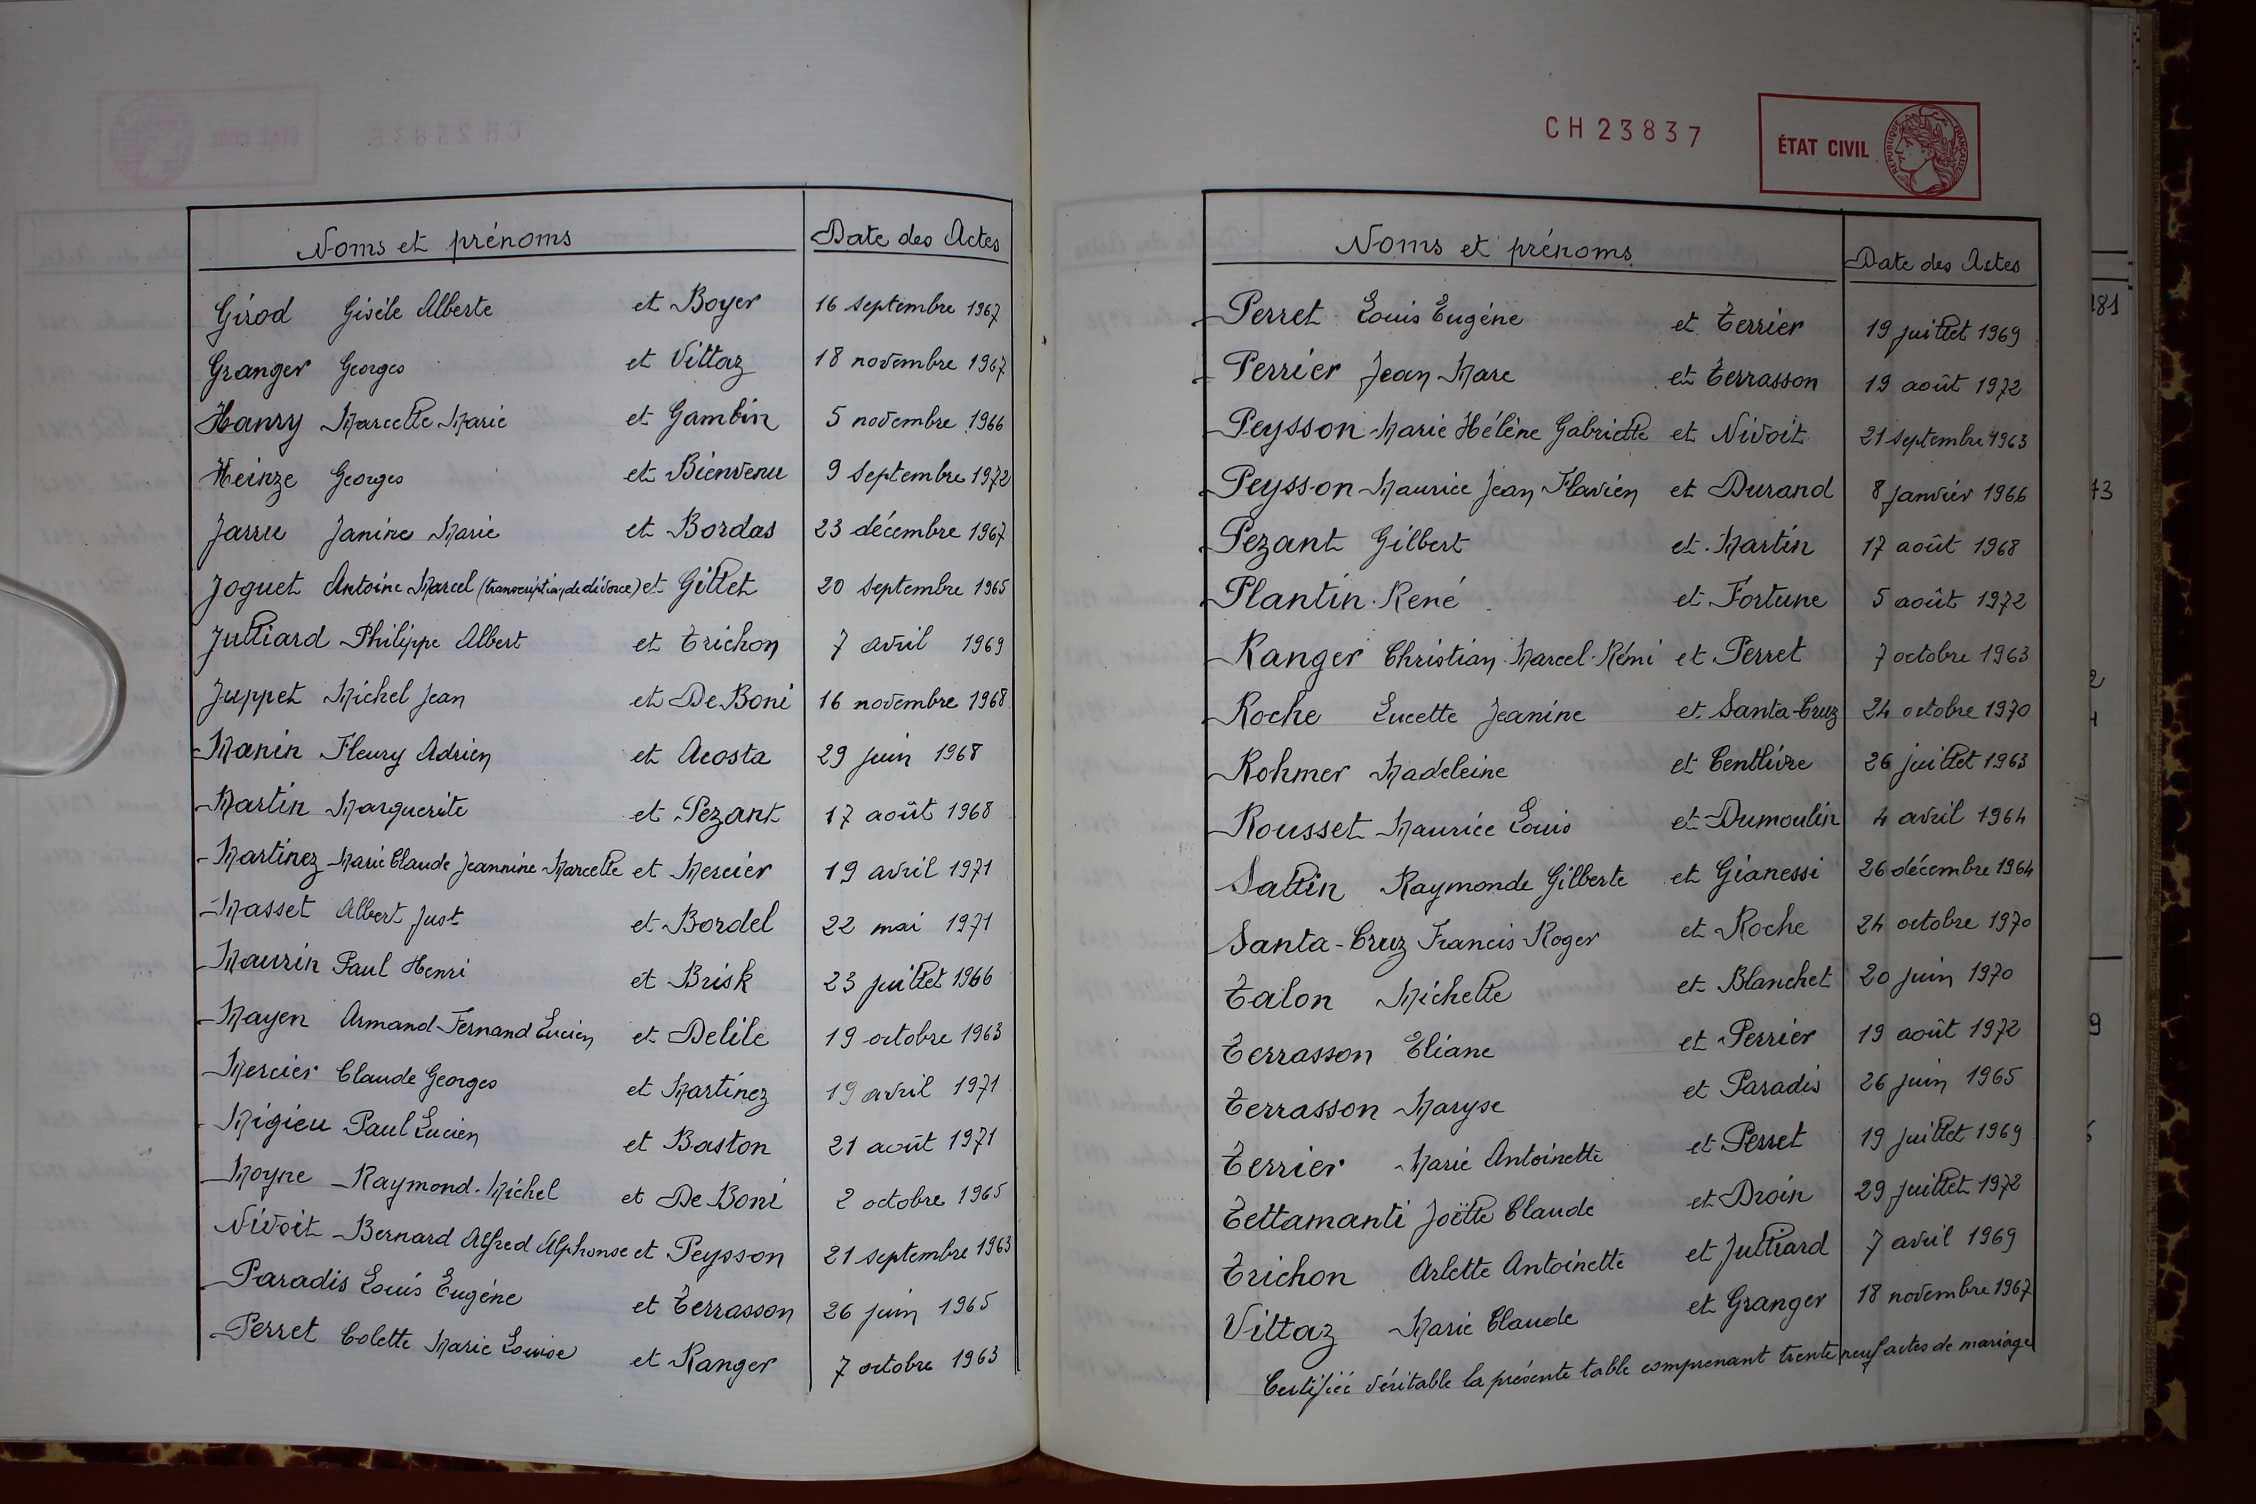 Noms et prénoms Date des Actes
Girod Gisèle Alberte et Boyer 16 septembre 1967
Granger Georges et Vittaz 18 novembre 1967
Hanry Marcelle Marie et Gambin 5 novembre 1966
Heinze Georges et Bienvenu 9 septembre 1972
Jarru Janine Marie et Bordas 23 décembre 1967
Joguet Antoine Marcel (transcription de divorce) et Gillet 20 septembre 1965
Julliard Philippe Albert et Trichon 7 avril 1969
Juppet Michel Jean et De Boni 16 novembre 1968
Manin Fleury Adrien et Acosta 29 juin 1968
Martin Marguerite et Pezant 17 août 1968
Martinez Marie Claude Jeannine Marcelle et Mercier 19 avril 1971
Masset Albert Just et Bordel 22 mai 1971
Maurin Paul Henri et Brisk 23 juillet 1966
Mayen Armand Fernand Lucien et Delile 19 octobre 1963
Mercier Claude Georges et Martinez 19 avril 1971
Migieu Paul Lucien et Baston 21 août 1971
Moyne Raymond Michel et De Boni 2 octobre 1965
Nivoit Bernard Alfred Alphonse et Peysson 21 septembre 1963
Paradis Louis Eugène et Terrasson 26 juin 1965
Perret Colette Marie Louise et Ranger 7 octobre 1963
CH23837
ÉTAT CIVIL
RÉPUBLIQUE FRANÇAISE
Noms et prénoms Date des Actes
Perret Louis Eugène et Terrier 19 juillet 1969
Perrier Jean Marc et Terrasson 19 août 1972
Peysson Marie Hélène Gabrielle et Nivoit 21 septembre 1963
Peysson Maurice Jean Flavien et Durand 8 janvier 1966
Pezant Gilbert et Martin 17 août 1968
Plantin René et Fortune 5 août 1972
Ranger Christian Marcel Rémi et Perret 7 octobre 1963
Roche Lucette Jeanine et Santa-Cruz 24 octobre 1970
Rohmer Madeleine et Centlivre 26 juillet 1963
Rousset Maurice Louis et Dumoulin 4 avril 1964
Sallin Raymonde Gilberte et Gianessi 26 décembre 1964
Santa-Cruz Francis Roger et Roche 24 octobre 1970
Talon Michelle et Blanchet 20 juin 1970
Terrasson Eliane et Perrier 19 août 1972
Terrasson Maryse et Paradis 26 juin 1965
Terrier Marie Antoinette et Perret 19 juillet 1969
Tettamanti Joëlle Claude et Droin 29 juillet 1972
Trichon Arlette Antoinette et Julliard 7 avril 1969
Vittaz Marie Claude et Granger 18 novembre 1967
Certifiée véritable la présente table comprenant trente neuf actes de mariage